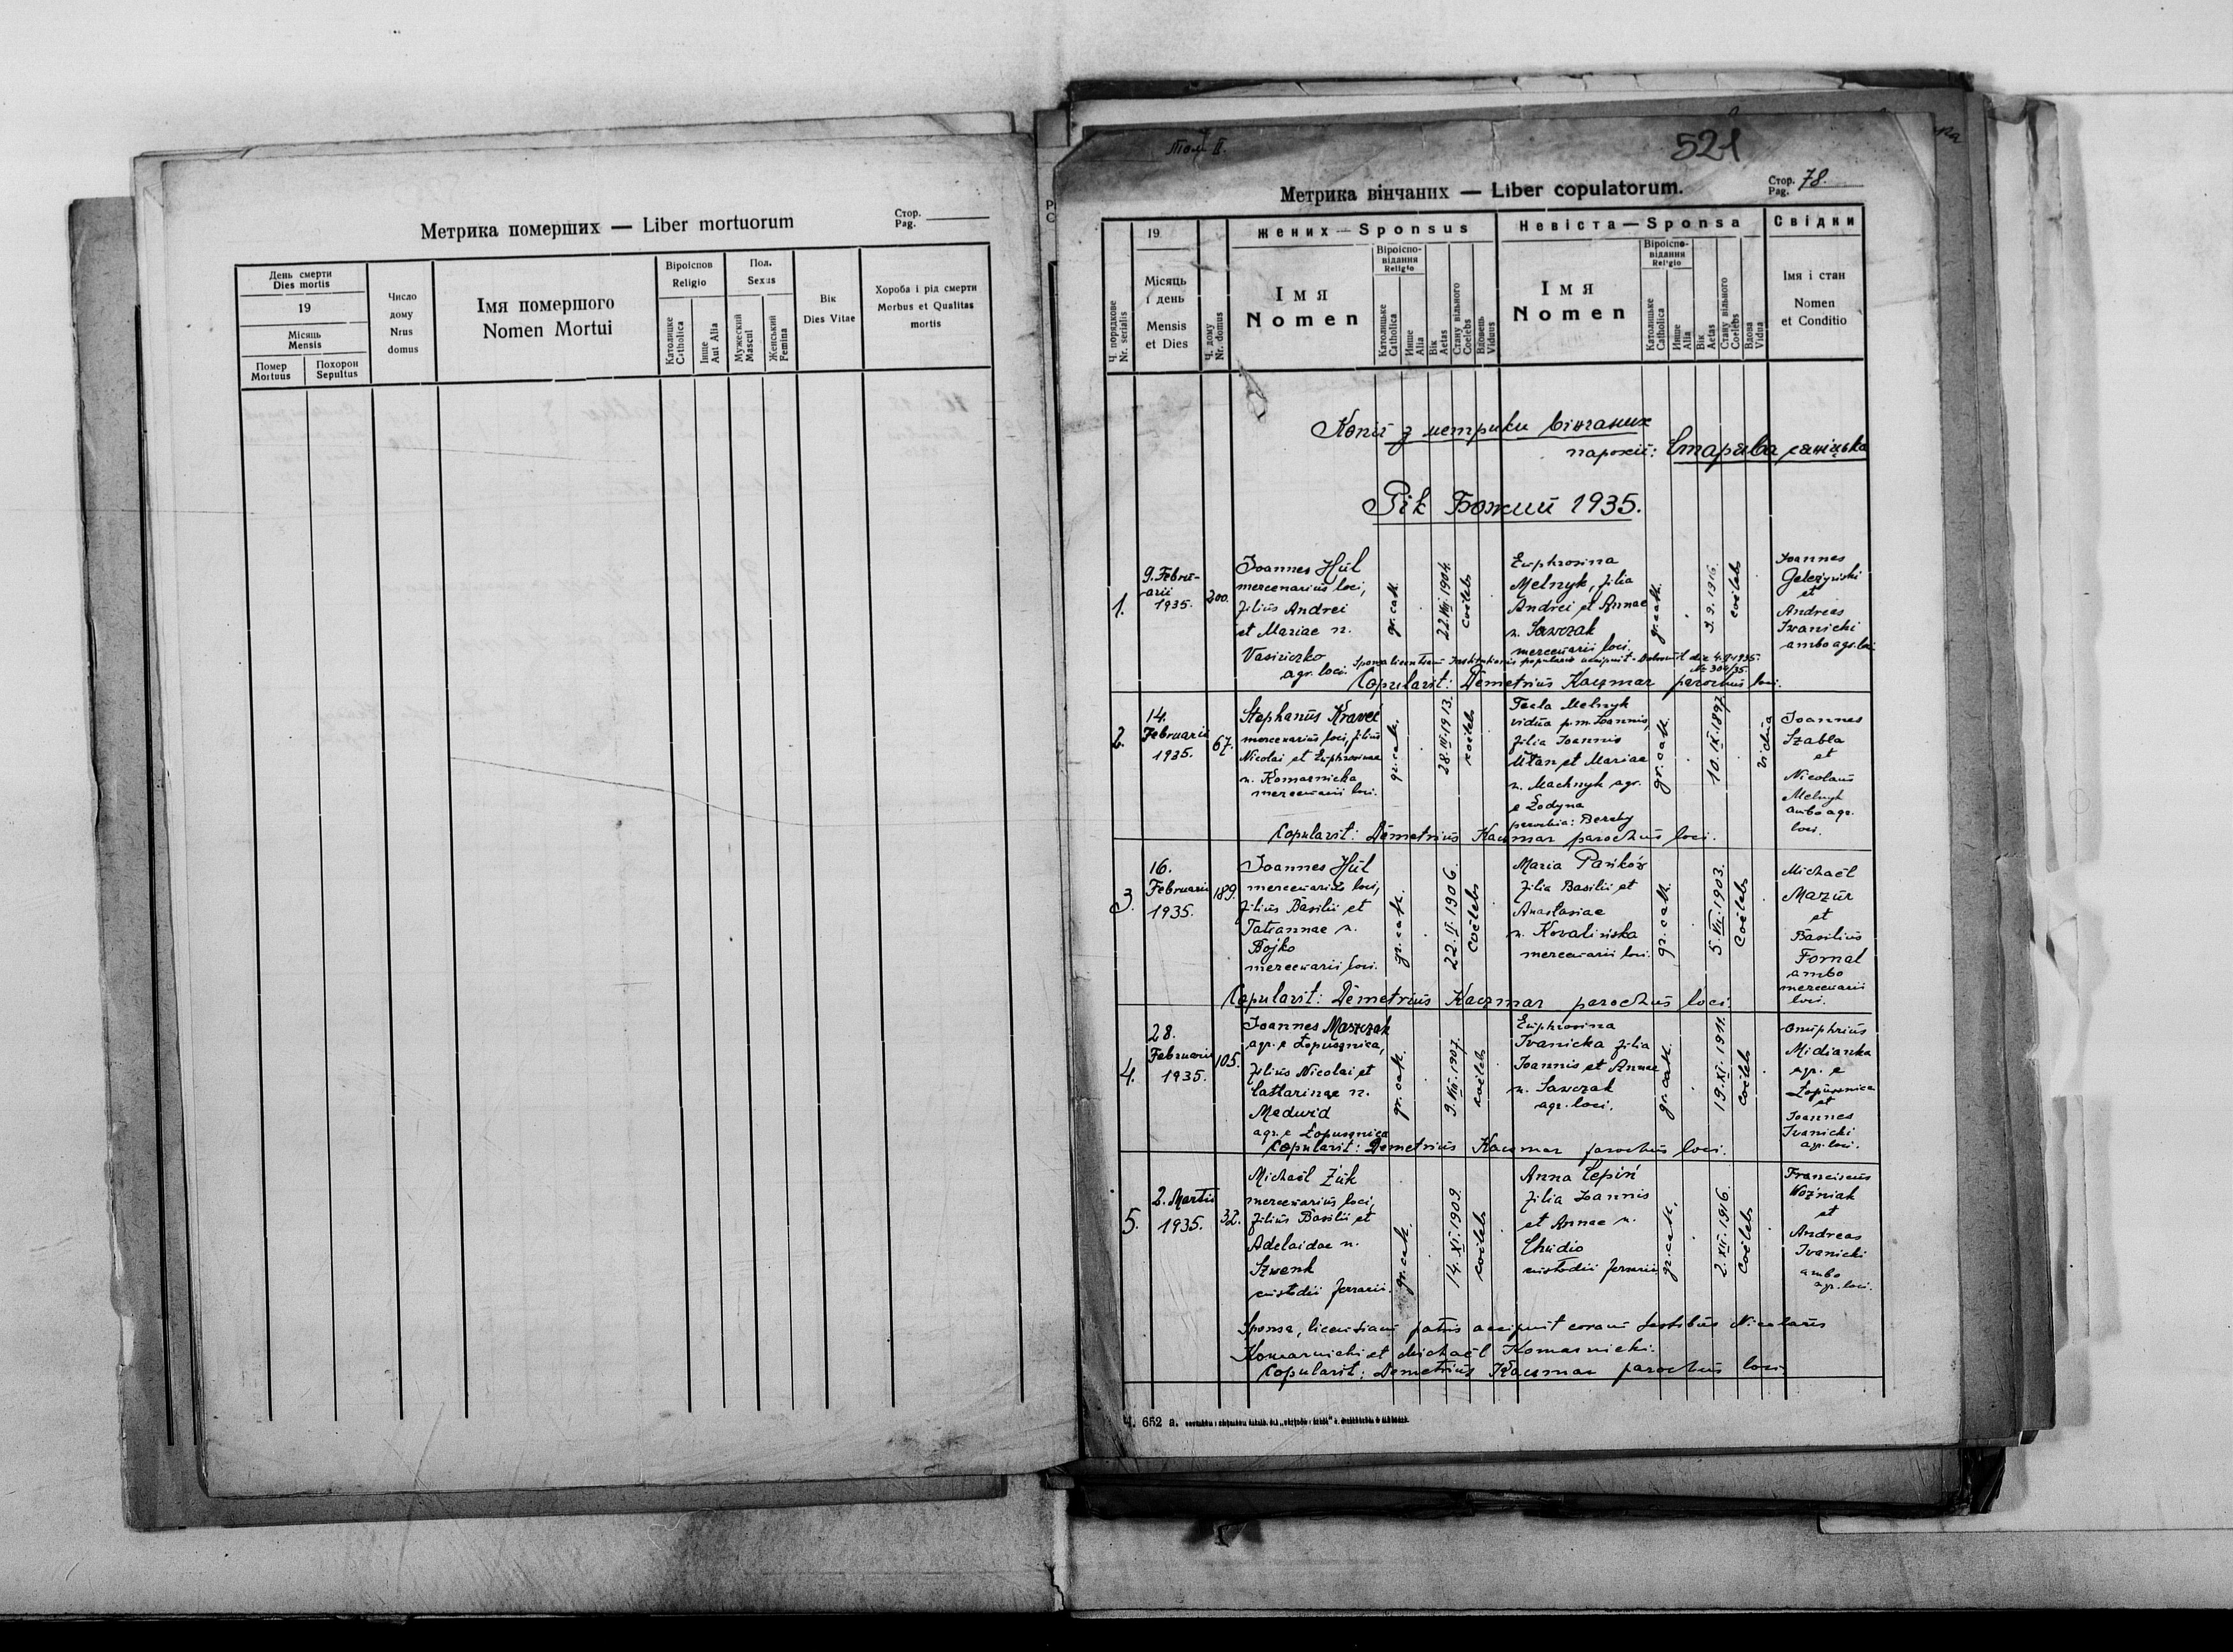 Метрика померших — Liber mortuorum
Стор.
Pag.
День смерти
Dies mortis
19
Місяць
Mensis
Помер
Mortuus
Похорон
Sepultus
Число
дому
Nrus
domus
Імя помершого
Nomen Mortui
Віроісповід
Religio
Католицке
Catholica
Інше
Aut Alia
Пол.
Sexus
Мужеский
Mascul
Женський
Femina
Вік
Dies Vitae
Хороба і рід смерти
Morbus et Qualitas
mortis
Том II.
521
Метрика вінчаних — Liber copulatorum.
Стор.
Pag. 78.
Ч. порядкове
Nr. serialis
19
Місяць
і день
Mensis
et Dies
Ч. дому
Nr. domus
Жених — Sponsus
Імя
Nomen
Віроіспо-
відання
Religio
Католицьке
Catholica
Инше
Alia
Вік
Aetas
Стану вільного
Coelebs
Вдовець
Viduus
Невіста — Sponsa
Імя
Nomen
Віроіспо-
відання
Religio
Католицьке
Catholica
Инше
Alia
Вік
Aetas
Стану вільного
Coelebs
Вдова
Vidua
Свідки
Імя і стан
Nomen
et Conditio
Копія з метрики вінчаних
парохії: Старява сяніцька
Рік Божий 1935.
1.
9. Febru-
arii
1935.
200.
Joannes Hul
mercenarius loci,
filius Andrei
et Mariae n.
agr. loci.
gr. cath.
22.VII.1904.
coelebs
Euphrosina
Melnyk, filia
Andrei et Annae
n. Sawczak
mercenarii loci.
gr. cath.
9.9.1916.
coelebs
Joannes
et
Andreas
Iwanicki
ambo agr. loci
Copulavit: Demetrius Kaczmar parochus loci.
2.
14.
Februarii
1935.
67.
Stephanus Kraveć
mercenarius loci, filius
Nicolai et Euphrosinae
n. Komarnicka
mercenarii loci.
gr. cath.
28.III.1913.
coelebs
Tecla Melnyk
vidua p.m. Joannis,
filia Joannis
et Mariae
n. Machnyk agr.
e Łodyna
parochia: Berehy
gr. cath.
10.IX.1897.
vidua
Joannes
Szabla
et
Nicolaus
Melnyk
ambo agr.
loci.
Copulavit: Demetrius Kaczmar parochus loci.
3.
16.
Februarii
1935.
189.
Joannes Hul
mercenarius loci,
filius Basilii et
Tatiannae n.
Bojko
mercenarii loci.
gr. cath.
22.II.1906.
coelebs
Maria Pańków
filia Basilii et
Anastasiae
n. Kovalińska
mercenarii loci.
gr. cath.
5.VII.1903.
coelebs
Michaël
Mazur
et
Basilius
Fornal
ambo
mercenarii
loci.
Copulavit: Demetrius Kaczmar parochus loci.
4.
28.
Februarii
1935.
105.
Joannes Maszczak
agr. e Łopusznica,
filius Nicolai et
Catharinae n.
Medwid
agr. e Łopusznica
gr. cath.
9.VIII.1907.
coelebs
Euphrosina
Ivanicka filia
Joannis et Annae
n. Sawczak
agr. loci.
gr. cath.
19.XI.1911.
coelebs
Onuphrius
Midianka
agr. e
Łopusznica
et
Joannes
Ivanicki
agr. loci.
Copulavit: Demetrius Kaczmar parochus loci.
5.
2. Martii
1935.
32.
Michaël Żuk
mercenarius loci,
filius Basilii et
Adelaidae n.
Szwenk
custodii ferrarii.
gr. cath.
14.XI.1909.
coelebs
Anna Cepiń
filia Joannis
et Annae n.
Chudio
custodii ferrarii
gr. cath.
2.XII.1916.
coelebs
Franciscus
Woźniak
et
Andreas
Ivanicki
ambo
agr. loci.
Sponsa, licentiam patris accipuit coram testibus Nicolaus
Komarnicki et Michaël Komarnicki.
Copulavit: Demetrius Kaczmar parochus loci.
Ч. 652 а.